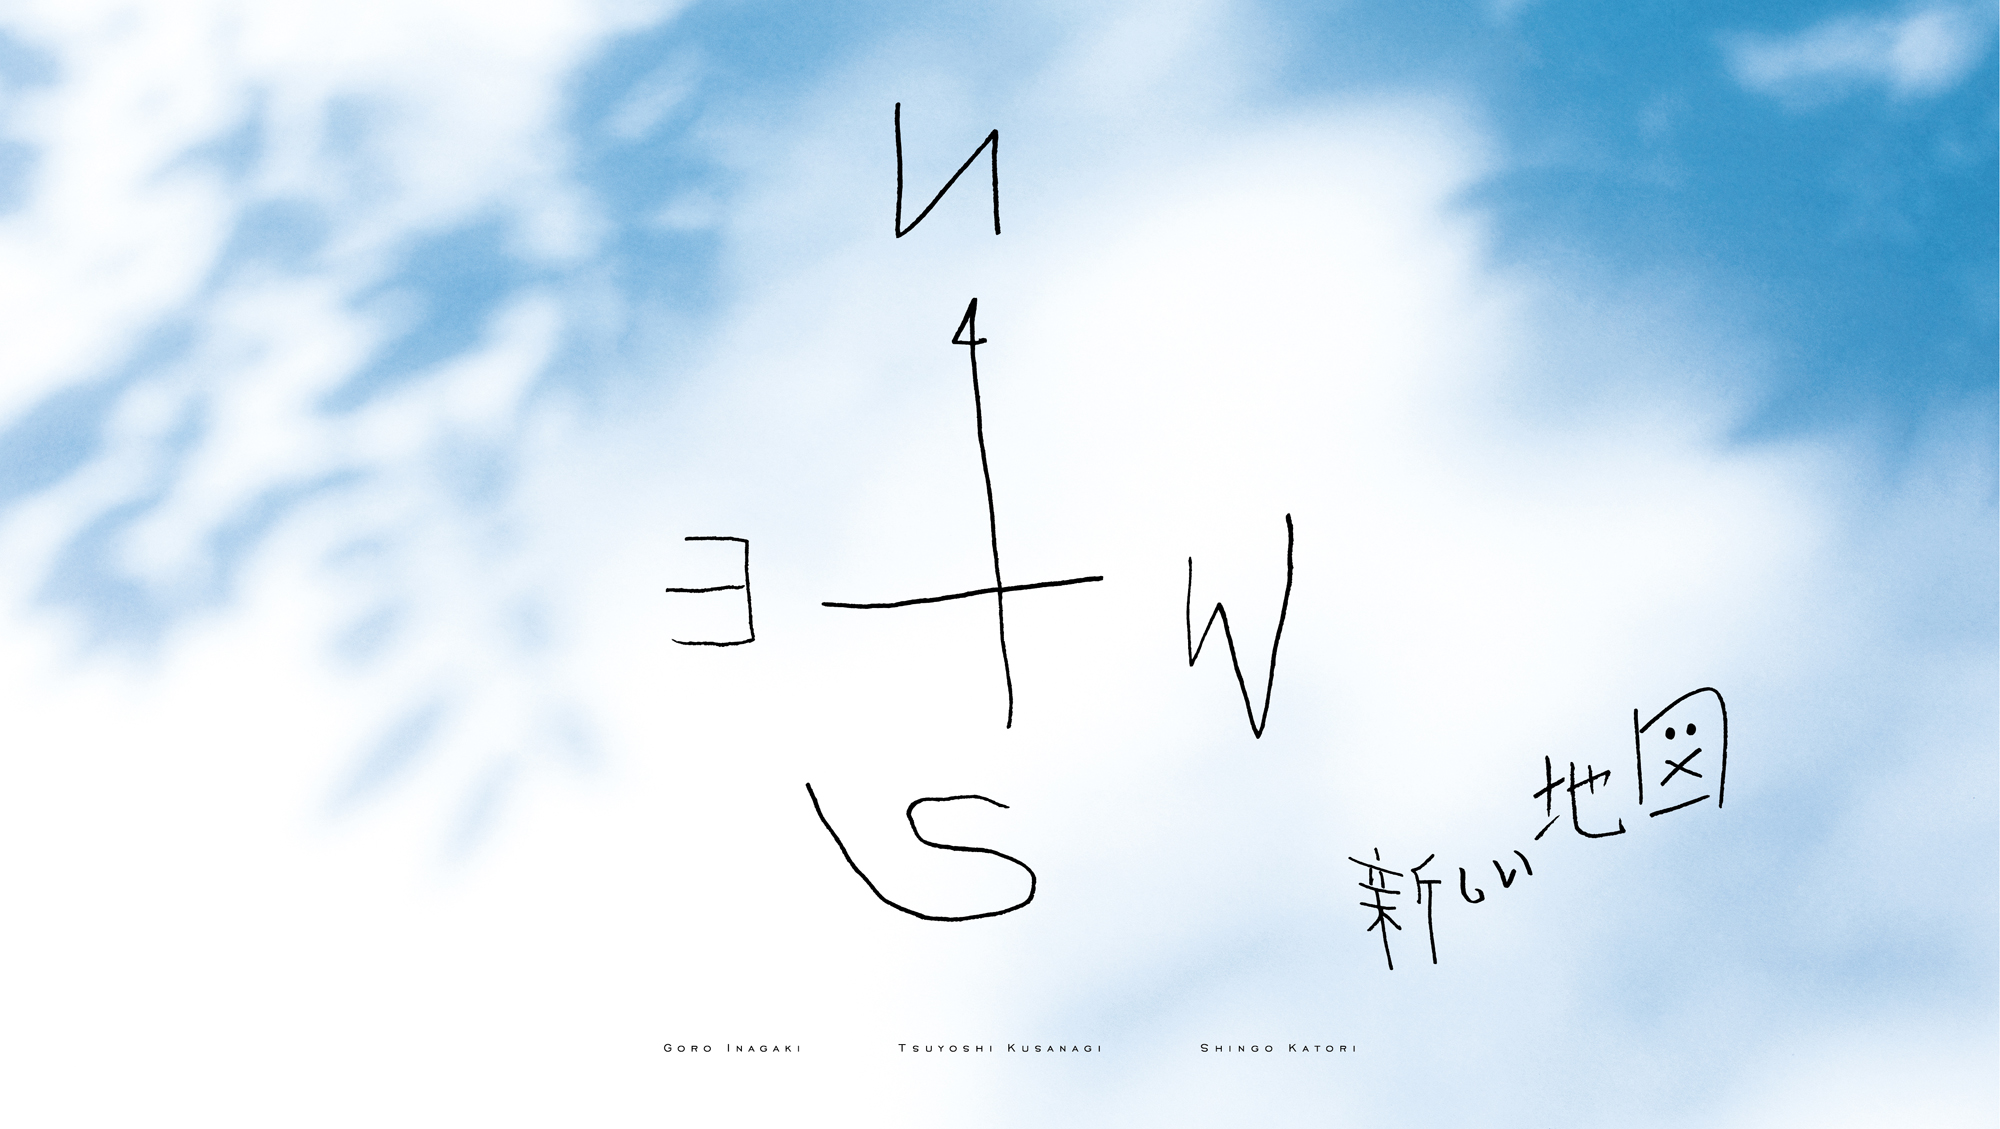 N
E W
S
新しい地図
GORO INAGAKI TSUYOSHI KUSANAGI SHINGO KATORI